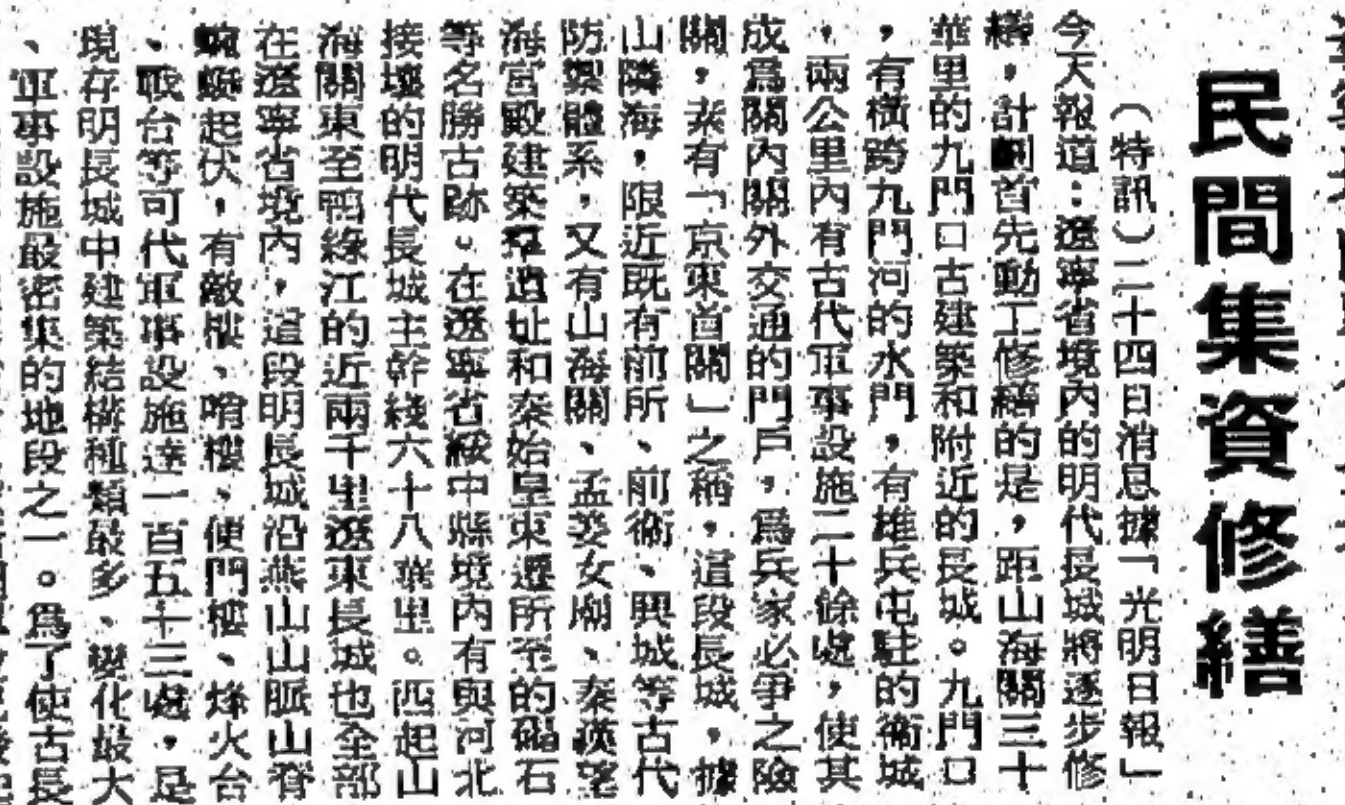 民間集資修繕
（特訊）二十四日消息據「光明日報」
今天報道：遼寧省境內的明代長城將逐步修
繕，計劃首先動工修繕的是，距山海關三十
華里的九門口古建築和附近的長城。九門口
，有橫跨九門河的水門，有雄兵屯駐的衛城
，兩公里內有古代軍事設施二十餘處，使其
成爲關內關外交通的門戶，爲兵家必爭之險
關，素有「京東首關」之稱，這段長城，據
山隣海，限近既有前所、前衞、興城等古代
防禦體系，又有山海關、孟姜女廟、秦漢望
海宮殿建築羣遺址和秦始皇東遷所至的碣石
等名勝古跡。在遼寧省綏中縣境內有與河北
接壤的明代長城主幹綫六十八華里。西起山
海關東至鴨綠江的近兩千里遼東長城也全部
在遼寧省境內，這段明長城沿燕山山脈山脊
蜿蜒起伏，有敵樓、哨樓、便門樓、烽火台
、戰台等可代軍事設施達一百五十三處，是
現存明長城中建築結構種類最多、變化最大
、軍事設施最密集的地段之一。爲了使古長